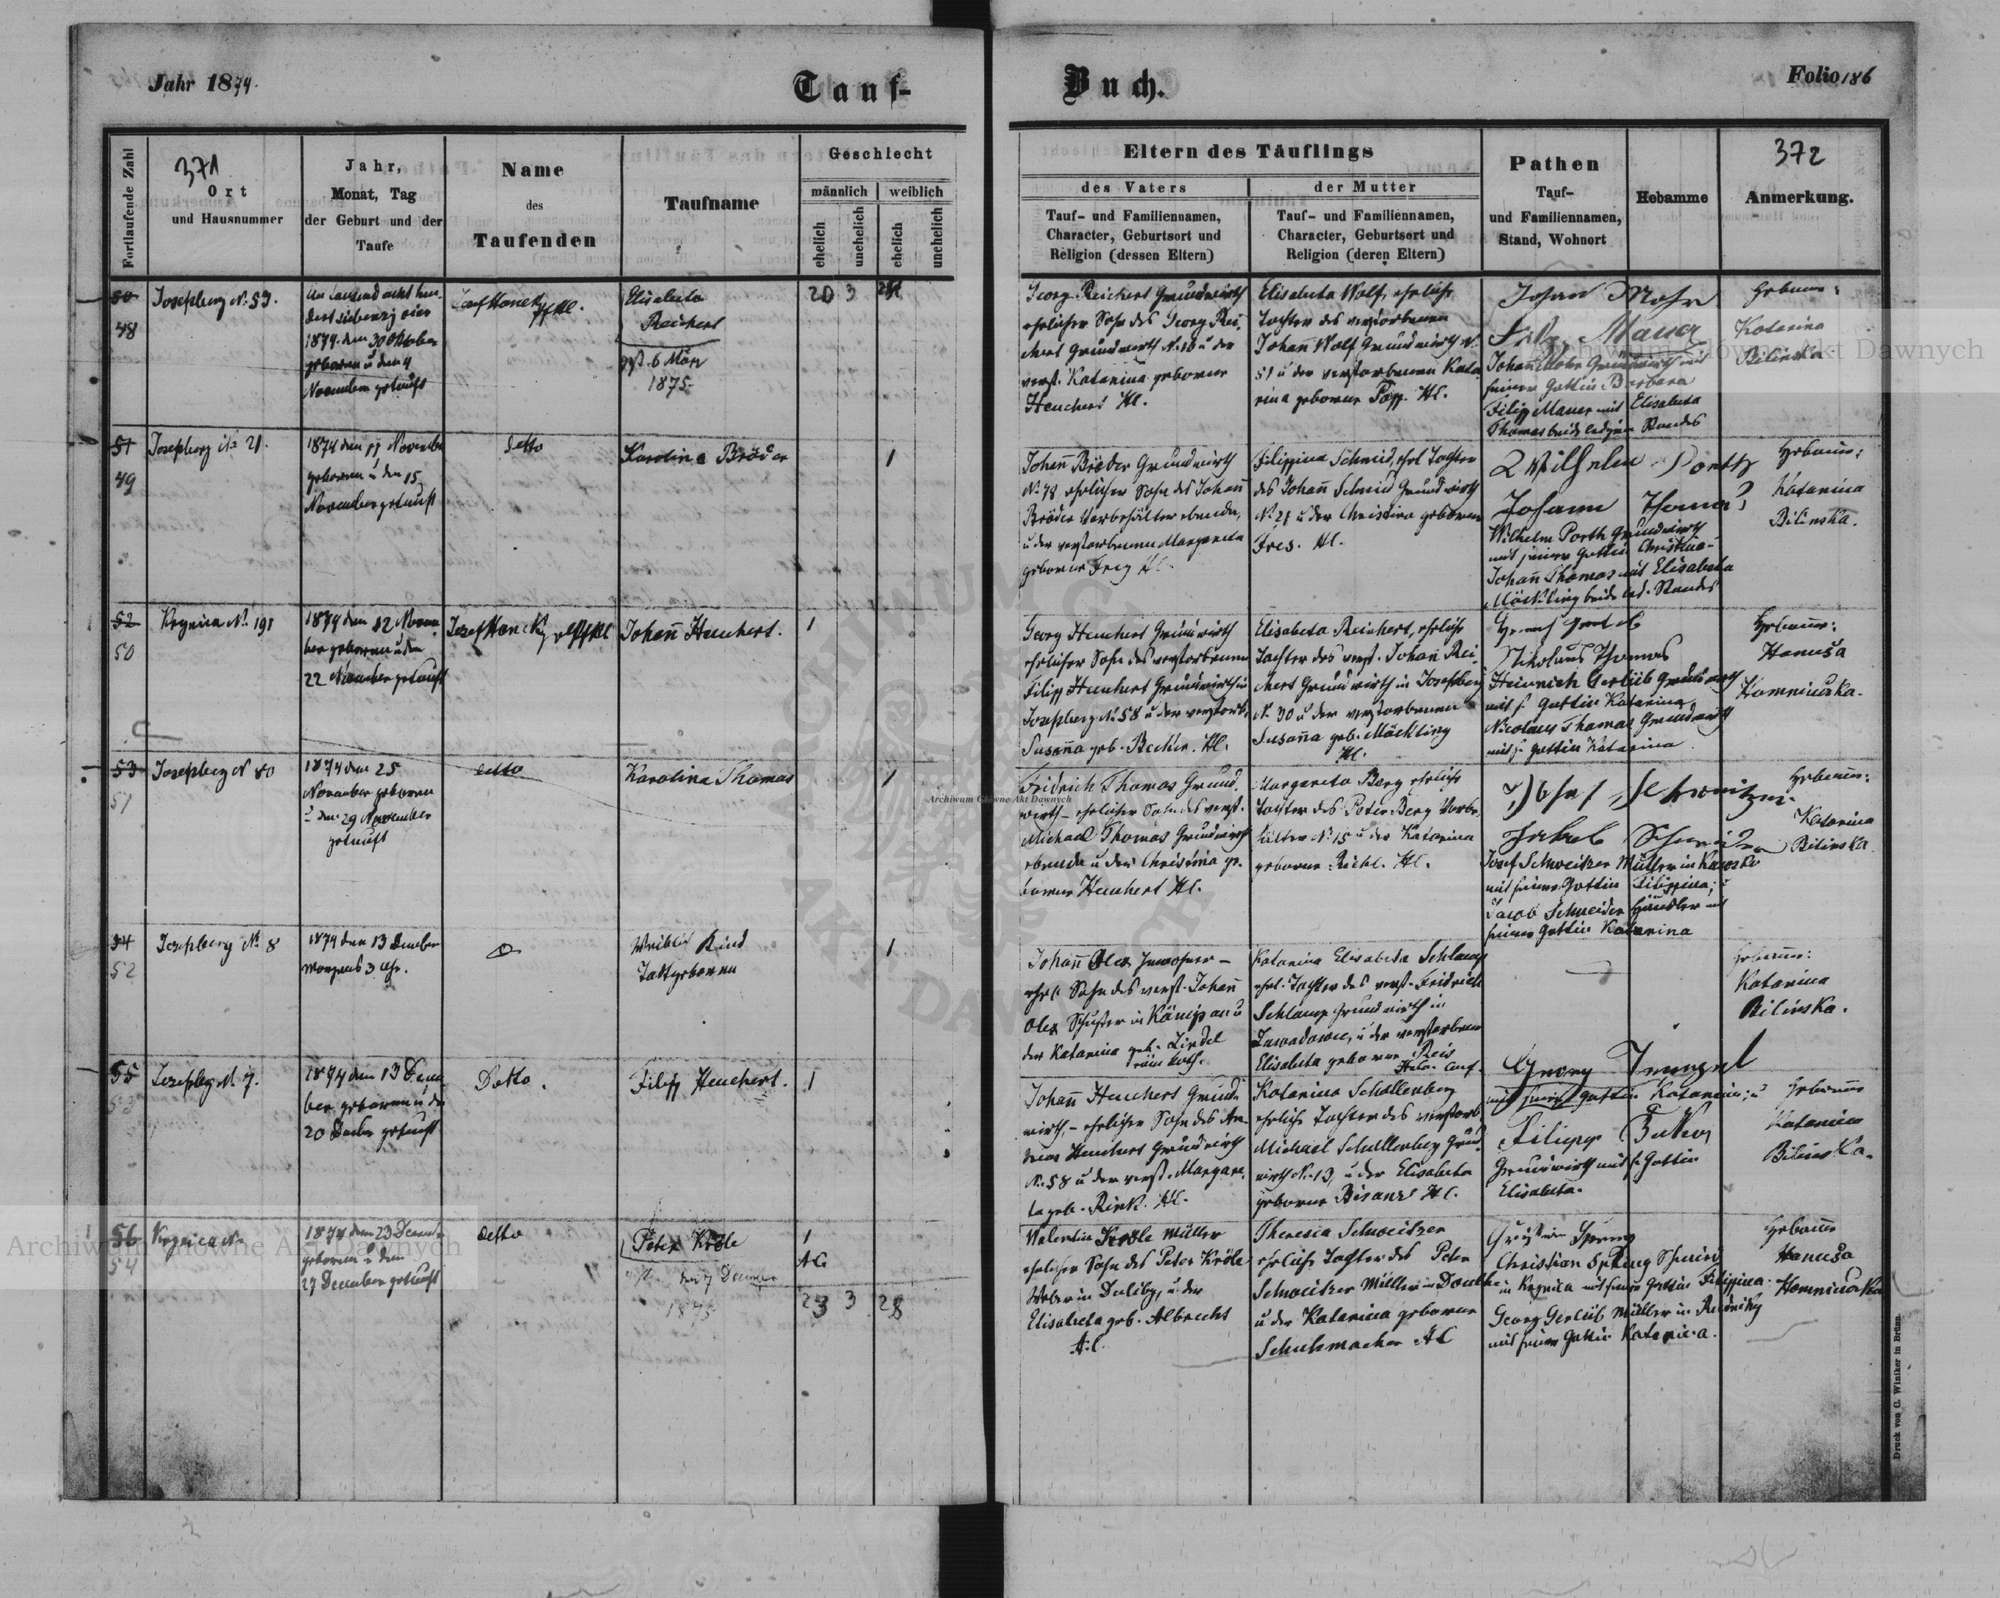 Jahr 1874.
Tauf-
Buch.
Folio 186
Fortlaufende Zahl
371
Ort
und Hausnummer
Jahr,
Monat, Tag
der Geburt und der
Taufe
Name
des
Taufenden
Taufname
Geschlecht
männlich
weiblich
ehelich
unehelich
ehelich
unehelich
Eltern des Täuflings
des Vaters
der Mutter
Tauf- und Familiennamen,
Character, Geburtsort und
Religion (dessen Eltern)
Tauf- und Familiennamen,
Character, Geburtsort und
Religion (deren Eltern)
Pathen
Tauf-
und Familiennamen,
Stand, Wohnort
Hebamme
372
Anmerkung.
50
48
Josefsberg N. 59.
Ein tausend acht hun-
dert siebenzig vier
1874. den 30 Oktober
geboren u den 4
November getauft
Elisabeta
Reichert
gest. 6 März
1875.
20 3
Georg Reichert Grundwirth
ehelicher Sohn des Georg Rei-
chert Grundwirth N. 16 u der
verst. Katarina geborne
Heuchert HC.
Elisabeta Wolf, eheliche
Tochter des verstorbenen
Johann Wolf Grundwirth N.
51 u der verstorbenen Kata-
rina geborne HC.
Johan Mohr
Filip Mauer
Johann Mohr Grundwirth mit
seiner Gattin Barbara
Filipp Mauer mit Elisabeta
Thomas beide ledigen Standes
Hebamme:
Katarina
Bilinska
51
49
Josefsberg N. 21.
1874 den 11 November
geboren u den 15
November getauft
detto
Karolina Bröder
1
Johann Bröder Grundwirth
N. 78 ehelicher Sohn des Johann
Bröder Vorbehälter ebenda,
u der verstorbenen Margareta
geborne HC.
Filippina Schmid, ehel Tochter
des Johann Schmid Grundwirth
N. 21 u der Christina geborene
HC.
Wilhelm Porth
Johann Thomas
Wilhelm Porth Grundwirth
mit seiner Gattin Christina
Johann Thomas mit Elisabeta
Möckling beide led. Standes
Hebamme:
Katarina
Bilinska.
52
50
Krynica N. 191
1874 den 12 Novem-
ber geboren u den
22 November getauft
Johann Heuchert.
1
Georg Heuchert Grundwirth
ehelicher Sohn des verstorbenen
Filipp Heuchert Grundwirth in
Josefsberg N. 58 u der verstorb.
Susanna geb. Becker. HC.
Elisabeta Reichert, eheliche
Tochter des verst. Johan Rei-
chert Grundwirth in Josefsberg
N. 30 u der verstorbenen
Susanna geb. Möckling
HC.
Nikolaus Thomas
Heinrich Gerlieb Grundwirth
mit s. Gattin Katarina
Nicolaus Thomas Grundwirth
mit s. Gattin Katarina
Hebamme:
Hanuša
53
51
Josefsberg N 80
1874 den 25
November geboren
u den 29 November
getauft
detto
Karolina Thomas
1
Fridrich Thomas Grund-
wirth - ehelicher Sohn des verst.
Michael Thomas Grundwirth
ebenda u der Christina ge-
borene Heuchert HC.
Margareta Berg eheliche
Tochter des Peter Berg Vorbe-
hälter N. 15 u der Katarina
geborne HC.
Jakob Schneider
Josef Schweitzer Müller in
mit seiner Gattin Filippina; u
Jacob Schneider Händler mit
seiner Gattin Katarina
Hebamme:
Katarina
Bilinska
54
52
Josefsberg N. 8
1874 den 13 December
Morgens 3 Uhr.
Weiblich Kind
Todtgeboren
1
Johann Olex Inwohner -
ehel. Sohn des verst. Johann
Olex Schuster in Königsau u
der Katarina geb. Lindel
röm. kath.
Katarina Elisabeta Schlamp
ehel. Tochter des verst. Fridrich
Schlamp Grundwirth in
u der verstorbenen
Elisabeta geborne Reis
Hebamme:
Katarina
Bilinska.
55
53
Josefsberg N. 7.
1874 den 13 Decem-
ber geboren u den
20 December getauft
Detto.
Filipp Heuchert.
1
Johann Heuchert Grund-
wirth, - ehelicher Sohn des
Heuchert Grundwirth
N. 58 u der verst. Margare-
ta geb. Rink. HC.
Katarina Schallenberg
eheliche Tochter des verstorb
Michael Schallenberg Grund-
wirth N. 13, u der Elisabeta
geborne Bisanz HC.
Georg
mit seiner Gattin Katarina; u
Filipp
Grundwirth mit s. Gattin
Elisabeta.
Hebamme
Katarina
Bilinska.
56
54
Krynica N.
1874 den 23 December
geboren u den
27 December getauft
detto
Peter Kröle
den 7 December
1875
1
AC
23 3 28
Valentin Kröle Müller
ehelicher Sohn des Peter Kröle
Weber in Duliby, u der
Elisabeta geb. Albrecht
A.C.
Theresia Schweitzer
eheliche Tochter des Peter
Schweitzer Müller in
u der Katarina geborne
Schuhmacher AC
Christian Spring Schmied
in Krynica mit seiner Gattin Filippina.
Georg Gerlieb Müller in
mit seiner Gattin Katarina.
Hebamme
Hanuša
Druck von C. Winiker in Brünn.
Archiwum Główne Akt Dawnych
Archiwum Główne Akt Dawnych
Archiwum Główne Akt Dawnych